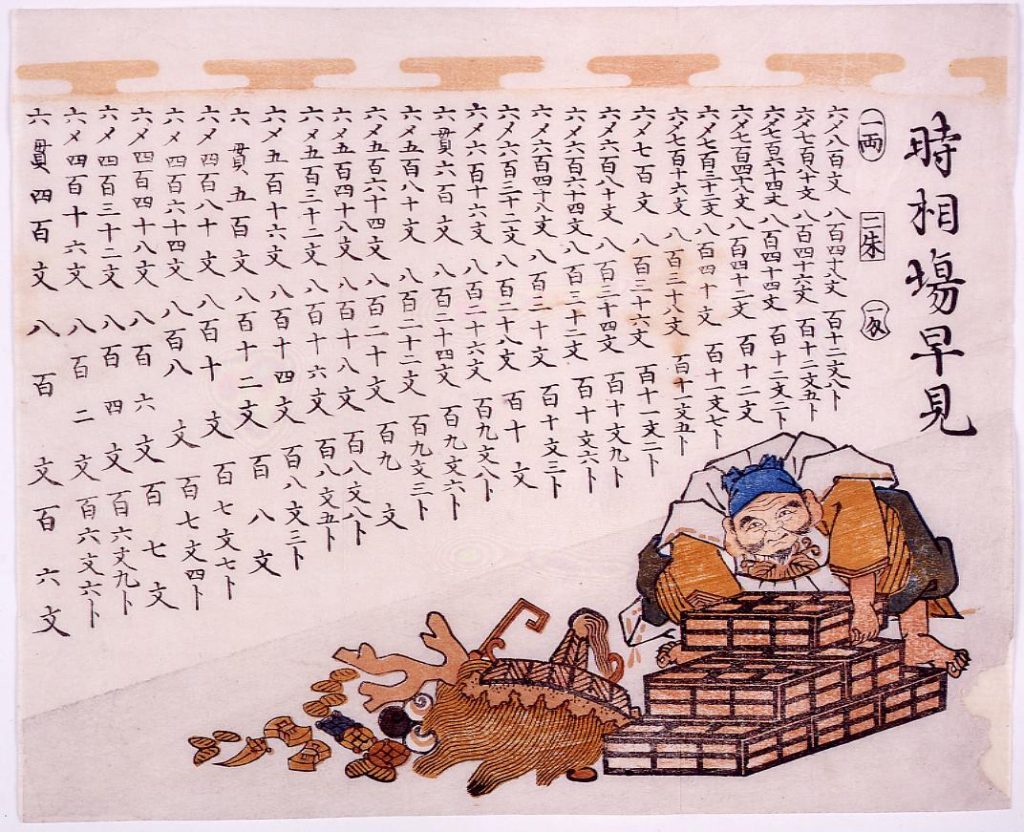 時相場早見
一両 二朱 一匁
六〆八百文 八百四十八文 百十二文八卜
六〆七百八十文 八百四十六文 百十二文五卜
六〆七百六十四文 八百四十四文 百十二文二卜
六〆七百四十八文 八百四十二文 百十二文
六〆七百三十二文 八百四十文 百十一文七卜
六〆七百十六文 八百三十八文 百十一文五卜
六〆七百文 八百三十六文 百十一文二卜
六〆六百八十文 八百三十四文 百十文九卜
六〆六百六十四文 八百三十二文 百十文六卜
六〆六百四十八文 八百三十文 百十文三卜
六〆六百三十二文 八百二十八文 百十文
六〆六百十六文 八百二十六文 百九文八卜
六貫六百文 八百二十四文 百九文六卜
六〆五百八十文 八百二十二文 百九文三卜
六〆五百六十四文 八百二十文 百九文
六〆五百四十八文 八百十八文 百八文八卜
六〆五百三十二文 八百十六文 百八文五卜
六〆五百十六文 八百十四文 百八文三卜
六貫五百文 八百十二文 百八文
六〆四百八十文 八百十文 百七文七卜
六〆四百六十四文 八百八文 百七文四卜
六〆四百四十八文 八百六文 百七文
六〆四百三十二文 八百四文 百六文九卜
六〆四百十六文 八百二文 百六文六卜
六貫四百文 八百文 百六文